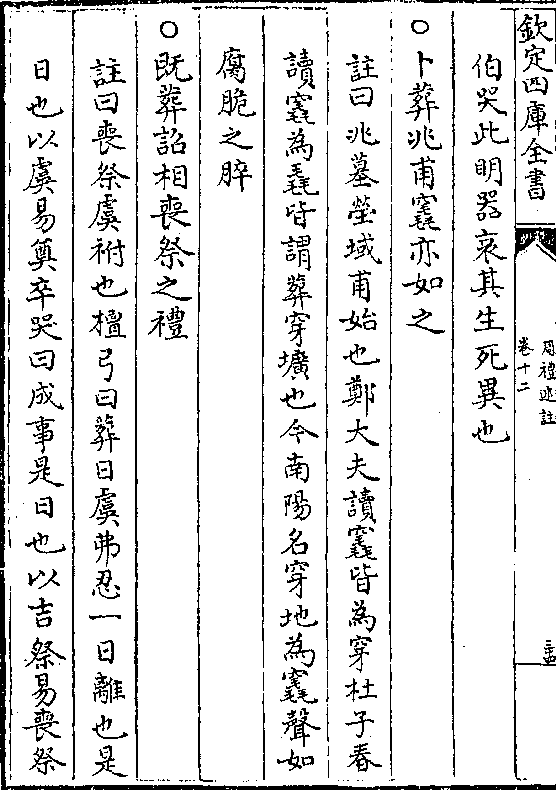 欽定四庫全書
周禮述註
卷十二
伯哭此明器哀其生死異也
○卜葬兆甫竁亦如之
註曰兆墓塋域甫始也鄭大夫讀竁皆為穿杜子春
讀竁為毳皆謂葬穿壙也今南陽名穿地為竁聲如
腐脆之脺
○既葬詔相喪祭之禮
註曰喪祭虞祔也檀弓曰葬日虞弗忍一日離也是
日也以虞易奠卒哭曰成事是日也以吉祭易喪祭